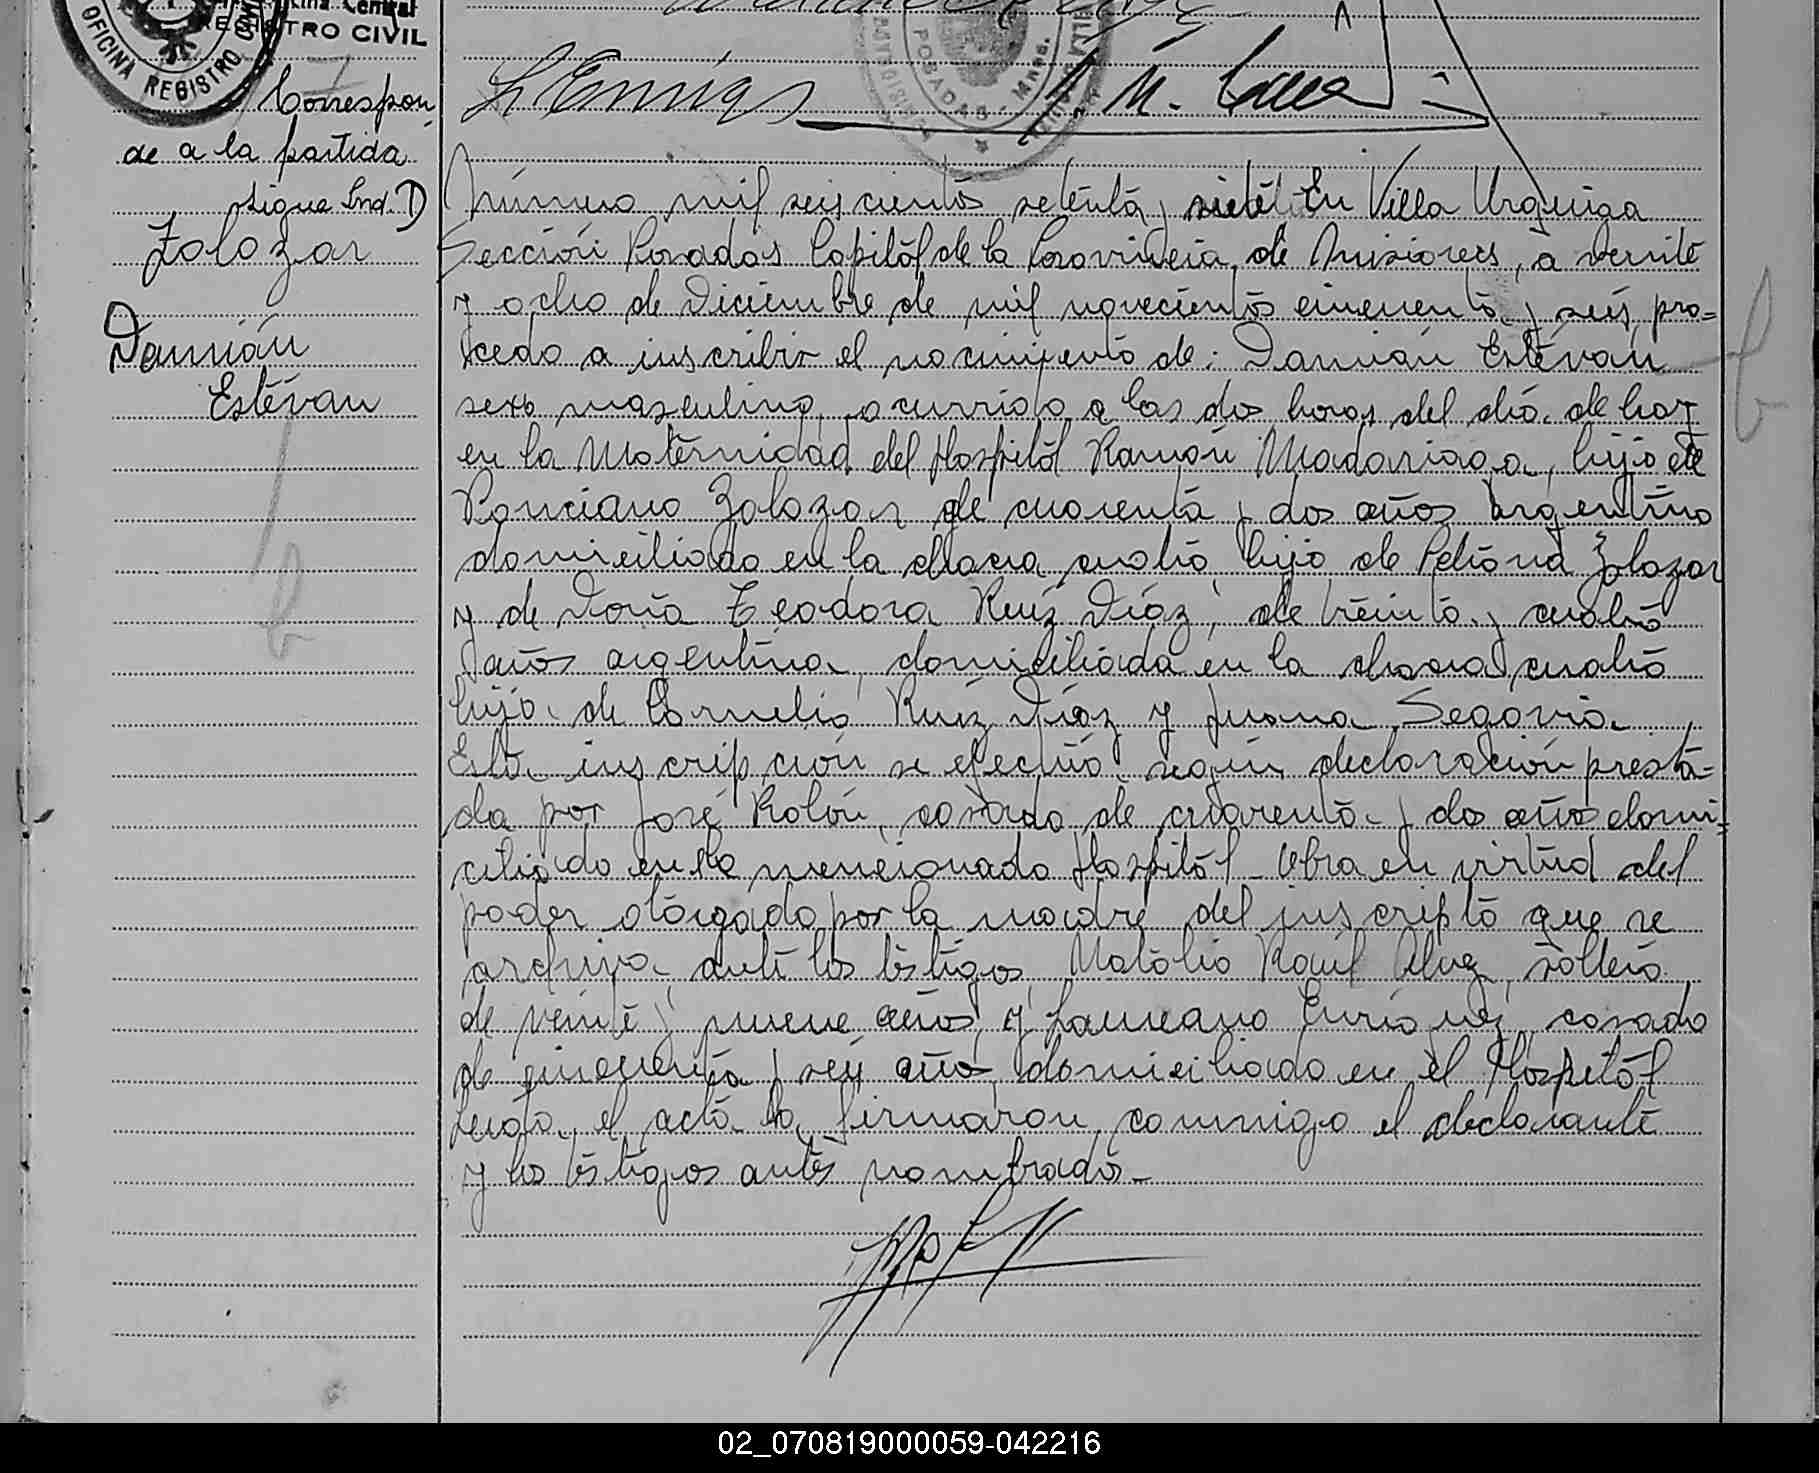 Central
REGISTRO CIVIL
OFICINA REGISTRO
POSADAS - MNES.
Correspon
de a la partida
sigue Ind. D
Zalazar
Damián
Estévan
Número mil seiscientos setenta y siete En Villa Urquiza
Sección Posadas Capital de la Provincia de Misiones, a veinte
y ocho de Diciembre de mil novecientos cincuenta y seis, pro=
cedo a inscribir el nacimiento de: Damián Estévan
sexo masculino, ocurrido a las dos horas del día de hoy
en la Maternidad del Hospital Ramón Madariaga, hijo de
Ponciano Zalazar de cuarenta y dos años argentino
domiciliado en la chacra cuatro, hijo de Petrona Zalazar
y de Doña Teodora Ruíz Díaz, de treinta y cuatro
años argentina, domiciliada en la chacra cuatro
hija de Cornelio Ruíz Díaz y Juana Segovia
Esta inscripción se efectúa según declaración presta=
da por José Rolón, casado de cuarenta y dos años domi=
ciliado en el mencionado Hospital - Obra en virtud del
poder otorgado por la madre del inscripto que se
archiva ante los testigos Natalio Raúl soltero
de veinte y nueve años y Laureano Enríquez, casado
de cincuenta y seis años domiciliado en el Hospital
Leída el acta la firmaron conmigo el declarante
y los testigos antes nombrados.-
02_070819000059-042216